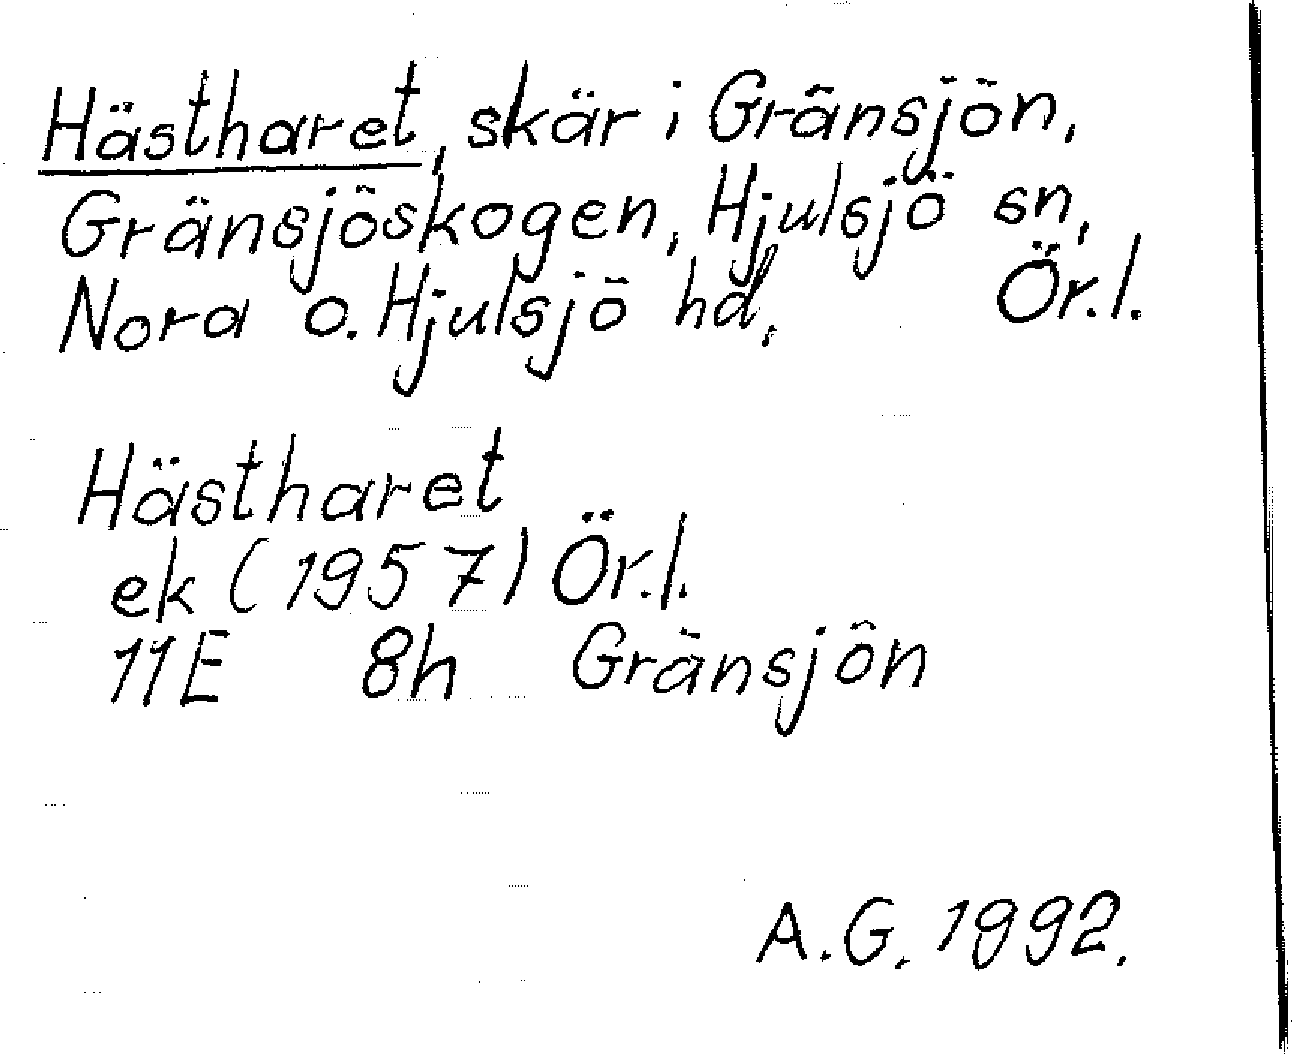 Hästharet, skär i Gränsjön,
Gränsjöskogen, Hjulsjö sn,
Nora o. Hjulsjö hd, Ör.l.
Hästharet
ek (1957) Ör.l.
11E 8h Gränsjön
A.G. 1992.